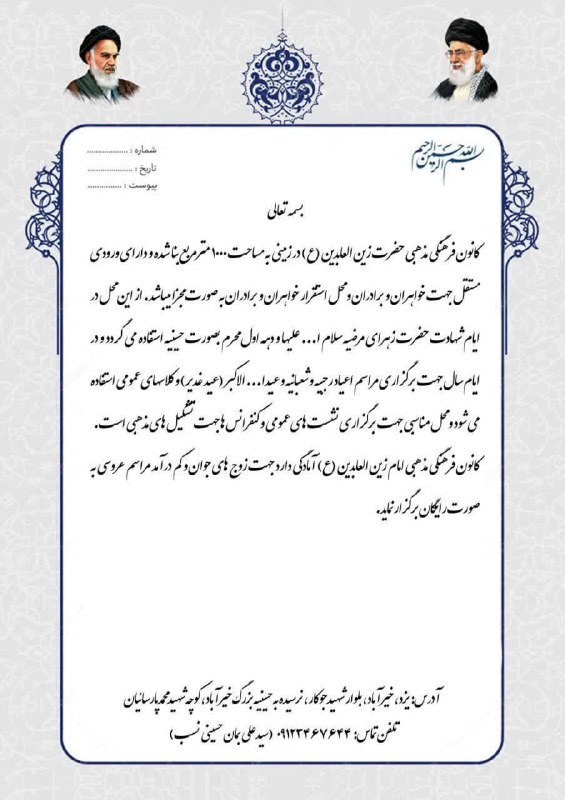 بسم الله الرحمن الرحیم
شماره : ...................
تاریخ : .....................
پیوست : ................
بسمه تعالی
کانون فرهنگی مذهبی حضرت زین العابدین (ع) در زمینی به مساحت ۱۰۰۰ متر مربع بنا شده و دارای ورودی
مستقل جهت خواهران و برادران و محل استقرار خواهران و برادران به صورت مجزا میباشد. از این محل در
ایام شهادت حضرت زهرای مرضیه سلام ا... علیها و دهه اول محرم بصورت حسینیه استفاده می گردد و در
ایام سال جهت برگزاری مراسم اعیاد رجبیه و شعبانیه و عید ا... الاکبر (عید غدیر) و کلاسهای عمومی استفاده
می شود و محل مناسبی جهت برگزاری نشست های عمومی و کنفرانس ها جهت تشکیل های مذهبی است.
کانون فرهنگی مذهبی امام زین العابدین (ع) آمادگی دارد جهت زوج های جوان و کم درآمد مراسم عروسی به
صورت رایگان برگزار نماید.
آدرس: یزد، خیرآباد، بلوار شهید جوکار، نرسیده به حسینیه بزرگ خیرآباد، کوچه شهید محمد پارسائیان
تلفن تماس: ۰۹۱۲۳۴۶۷۶۴۴ (سید علی بمان حسینی نسب)